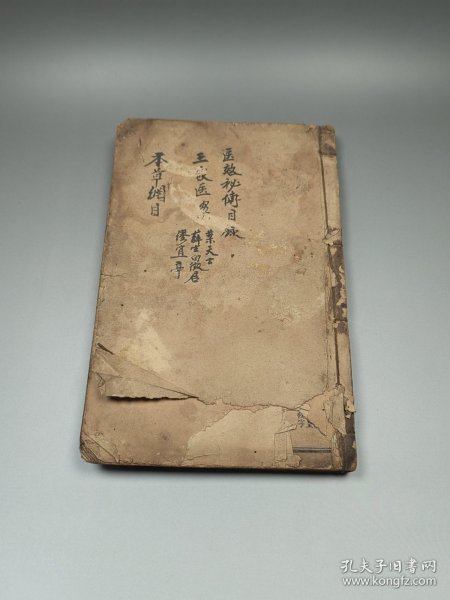 医效秘传目录
三家医案
葉天士
薛生白
缪宜亭
本草綱目
孔夫子旧书网
www.kongfz.com